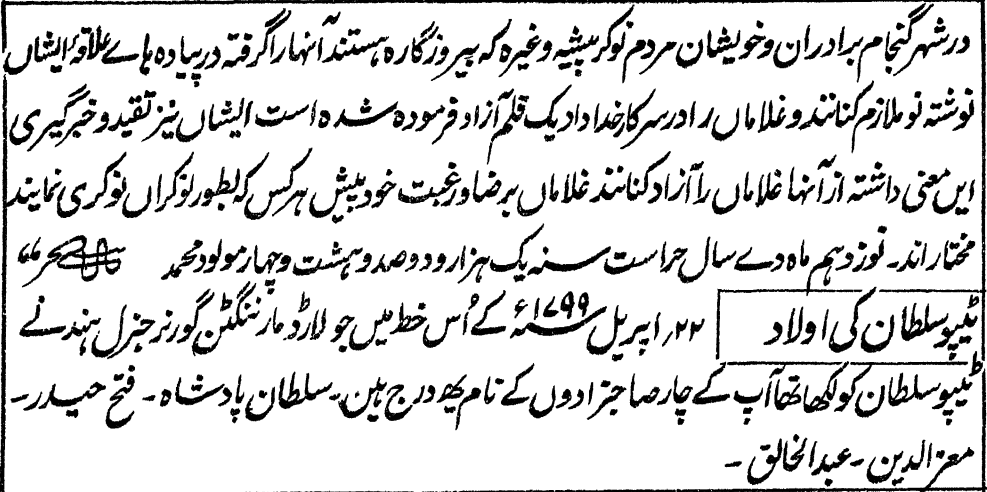 در شہر گنجام برادران و خویشان مردم نوکر پیشہ وغیرہ کہ بیروزگارہ ہستند آنہا را گرفتہ در پیادہ ہاے علاقۂ ایشاں
نوشتہ نو ملازم کنانند و غلاماں را در سرکار خداداد یک قلم آزاد فرمودہ شدہ است ایشاں نیز تقید و خبر گیری
ایں معنی داشتہ از آنہا غلاماں را آزاد کنانند غلاماں برضا و رغبت خود پیش ہر کس کہ بطور نوکراں نوکری نمایند
مختار اند۔ نوزدہم ماہ دے سال حراست سنہ یک ہزار و دو صد و ہشت و چہار مولود محمد
ٹیپو سلطان کی اولاد
۲۲؍ اپریل سنہ ۱۷۹۹ء کے اُس خط میں جو لارڈ مارننگٹن گورنر جنرل ہند نے
ٹیپو سلطان کو لکھا تھا آپ کے چار صاحبزادوں کے نام یہ درج ہین۔ سلطان پادشاہ۔ فتح حیدر۔
معز الدین۔ عبدالخالق۔